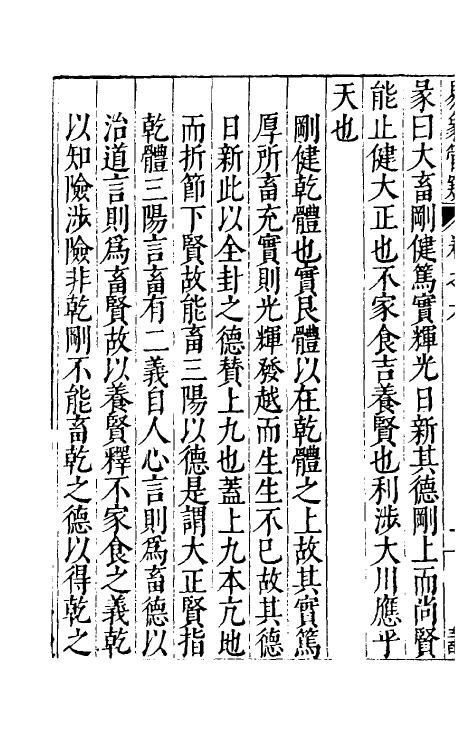 易象管窺 卷之六
彖曰大畜剛健篤實輝光日新其德剛上而尚賢
能止健大正也不家食吉養賢也利涉大川應乎
天也
剛健乾體也實艮體以在乾體之上故其實篤
厚所畜充實則光輝發越而生生不已故其德
日新此以全封之德賛上九也蓋上九本亢地
而折節下賢故能畜三陽以德是謂大正賢指
乾體三陽言畜有二義自人心言則爲畜德以
治道言則爲畜賢故以養賢釋不家食之義乾
以知險涉險非乾剛不能畜乾之德以得乾之